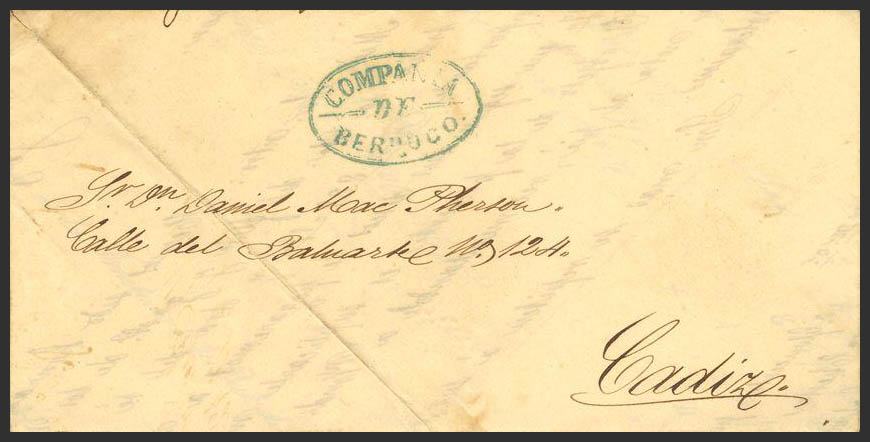 COMPAÑIA
DE
BERRUCO.
Sr. Dn. Daniel Mac Pherson.
Calle del Baluarte No. 124.
Cadiz.